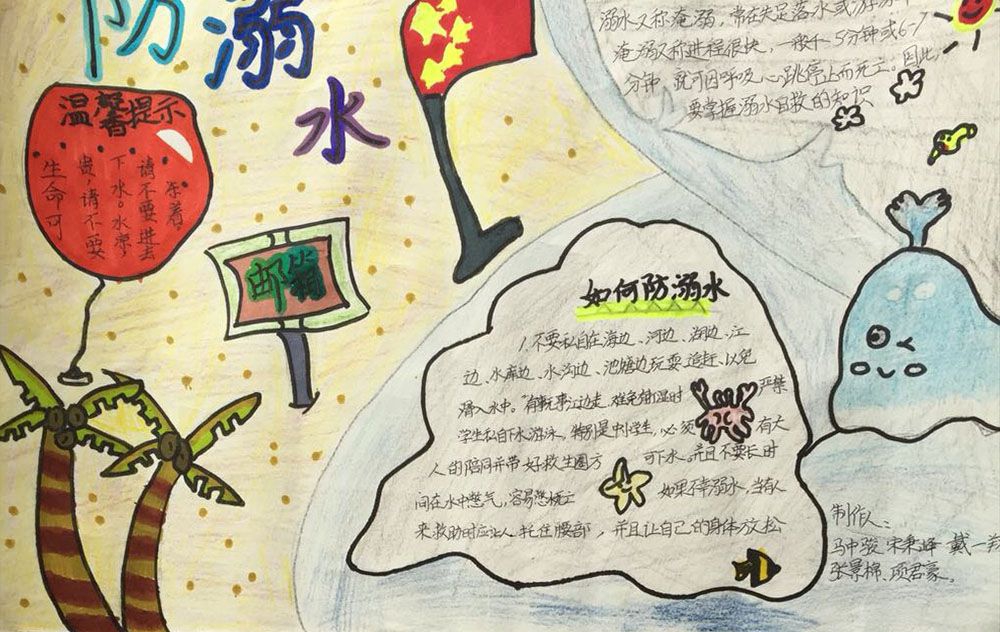 防溺
水
温馨提示
生命可
贵，请不要
下水。水凉，
请不要进去
邮箱
溺水又称淹溺，常在失足落水或游泳中
淹溺的进程很快，一般4-5分钟或6-7
分钟就可因呼吸心跳停止而死亡。因此，
要掌握溺水自救的知识
如何防溺水
1.不要私自在海边、河边、湖边、江
边、水库边、水沟边、池塘边玩耍、追赶，以免
滑入水中。 严禁
学生私自下水游泳，特别是中小学生，必须 有大
人的陪同并带好救生圈方 可下水。并且不要长时
间在水中憋气，
如果不幸溺水，当有人
来救助时应让人托住腰部，并且让自己的身体放松
制作人：
马中骏 宋秉峰 戴一
张景棉、项君豪。